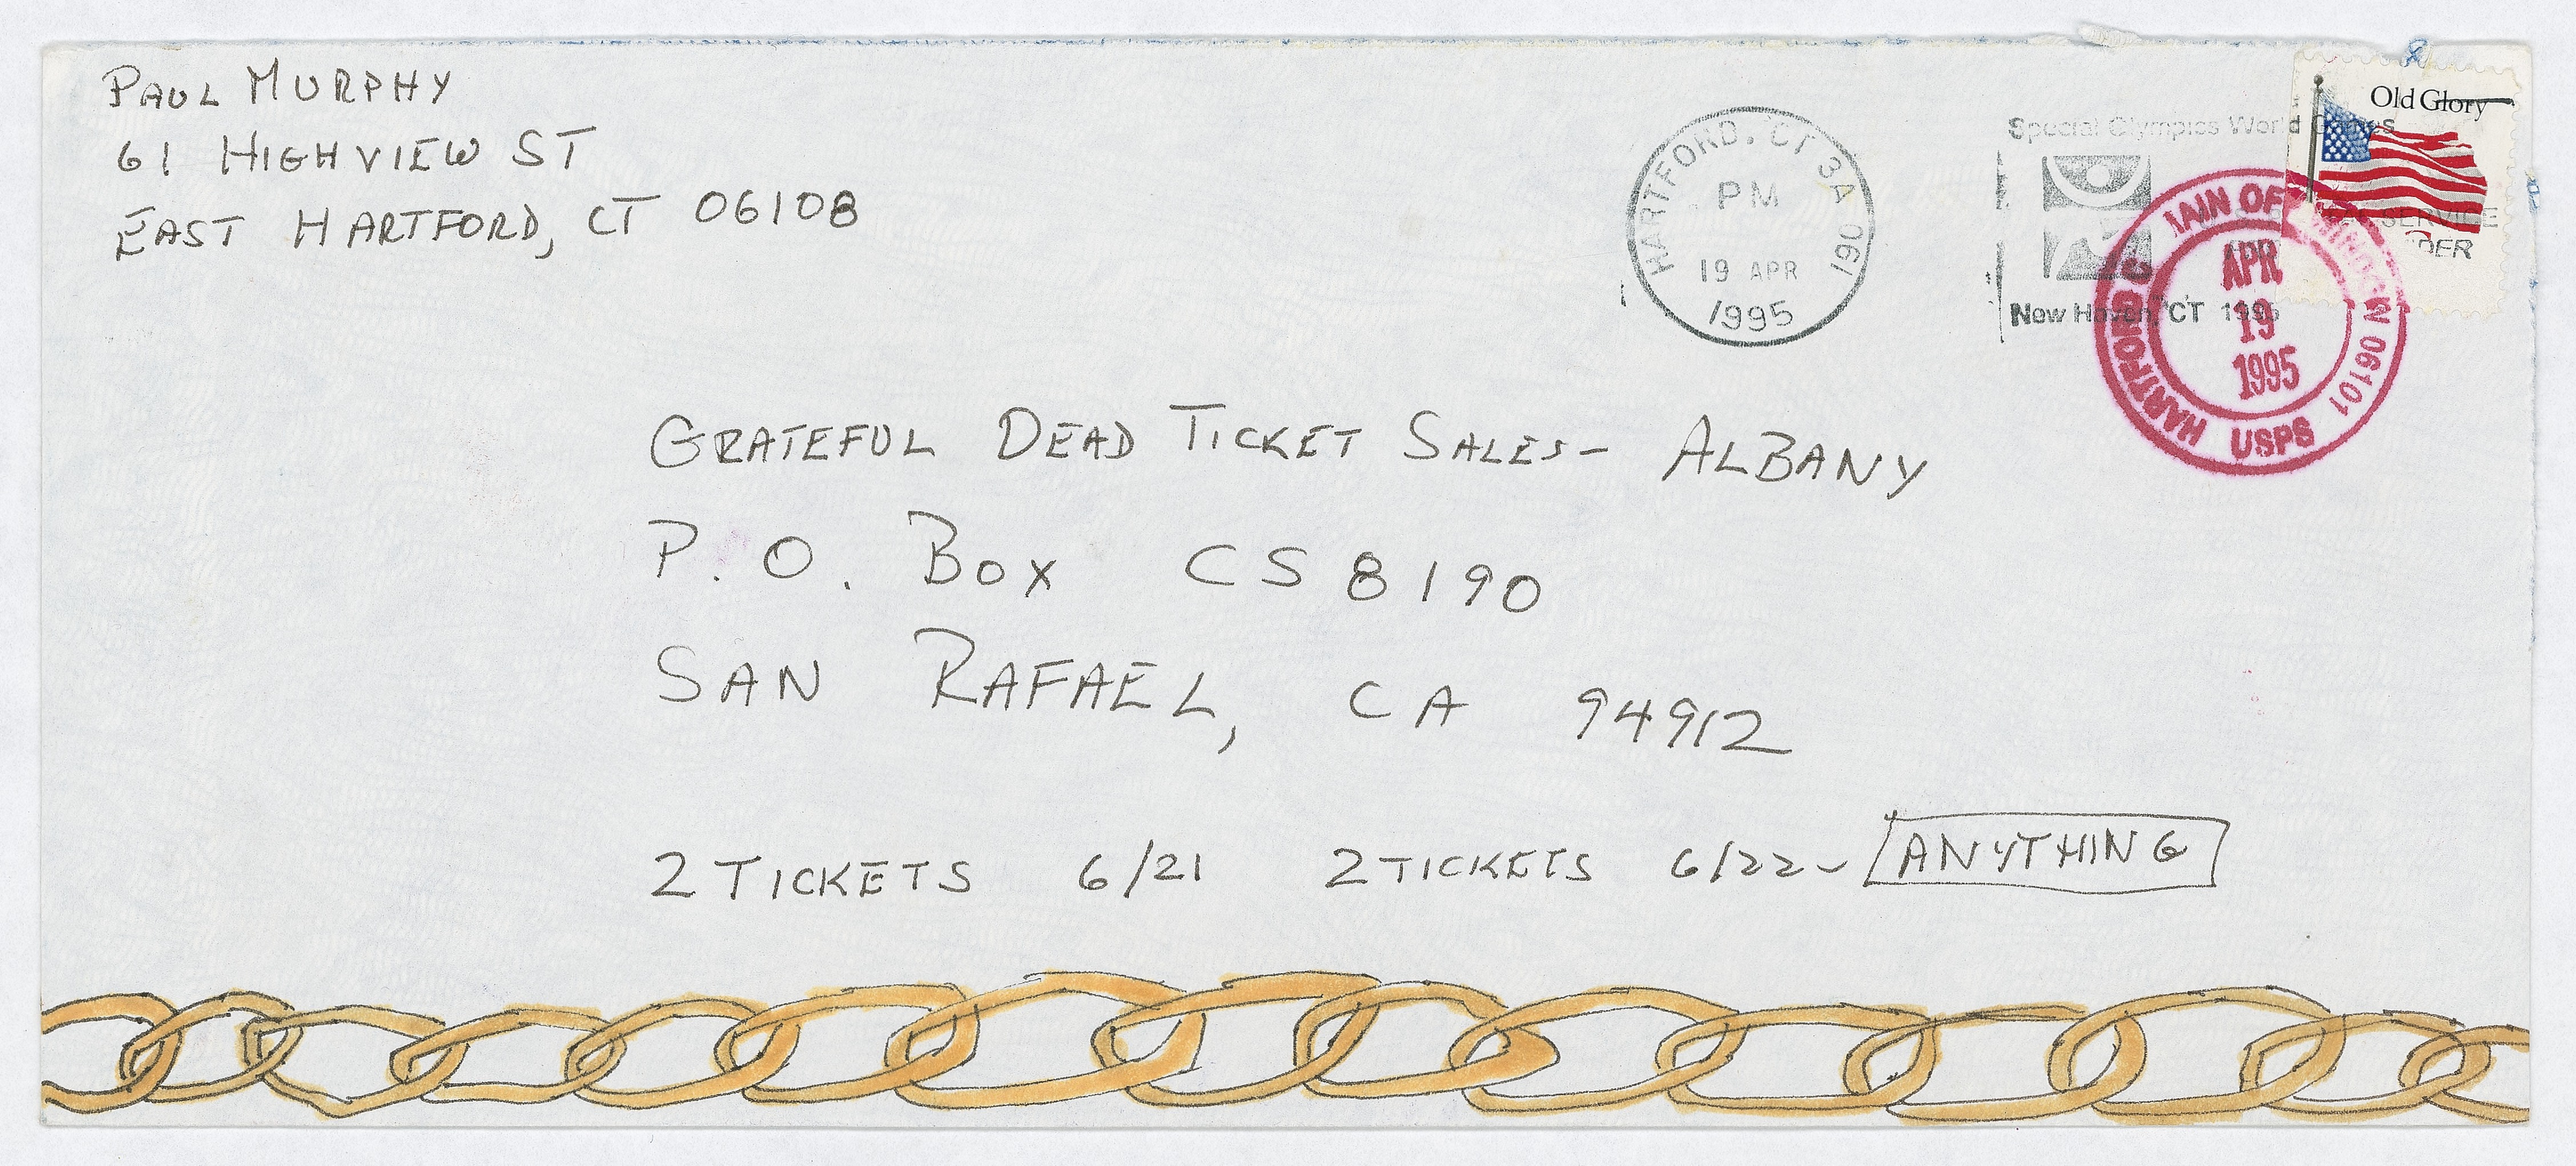 PAUL MURPHY
61 HIGHVIEW ST
EAST HARTFORD, CT 06108
HARTFORD, CT 3A 061
PM
19 APR
1995
Special Olympics World Games
New Haven, CT 1995
Old Glory
SERVICE
HARTFORD C
USPS
06101
APR
19
1995
GRATEFUL DEAD TICKET SALES - ALBANY
P. O. BOX CS 8190
SAN RAFAEL, CA 94912
2 TICKETS 6/21 2 TICKETS 6/22 - ANYTHING